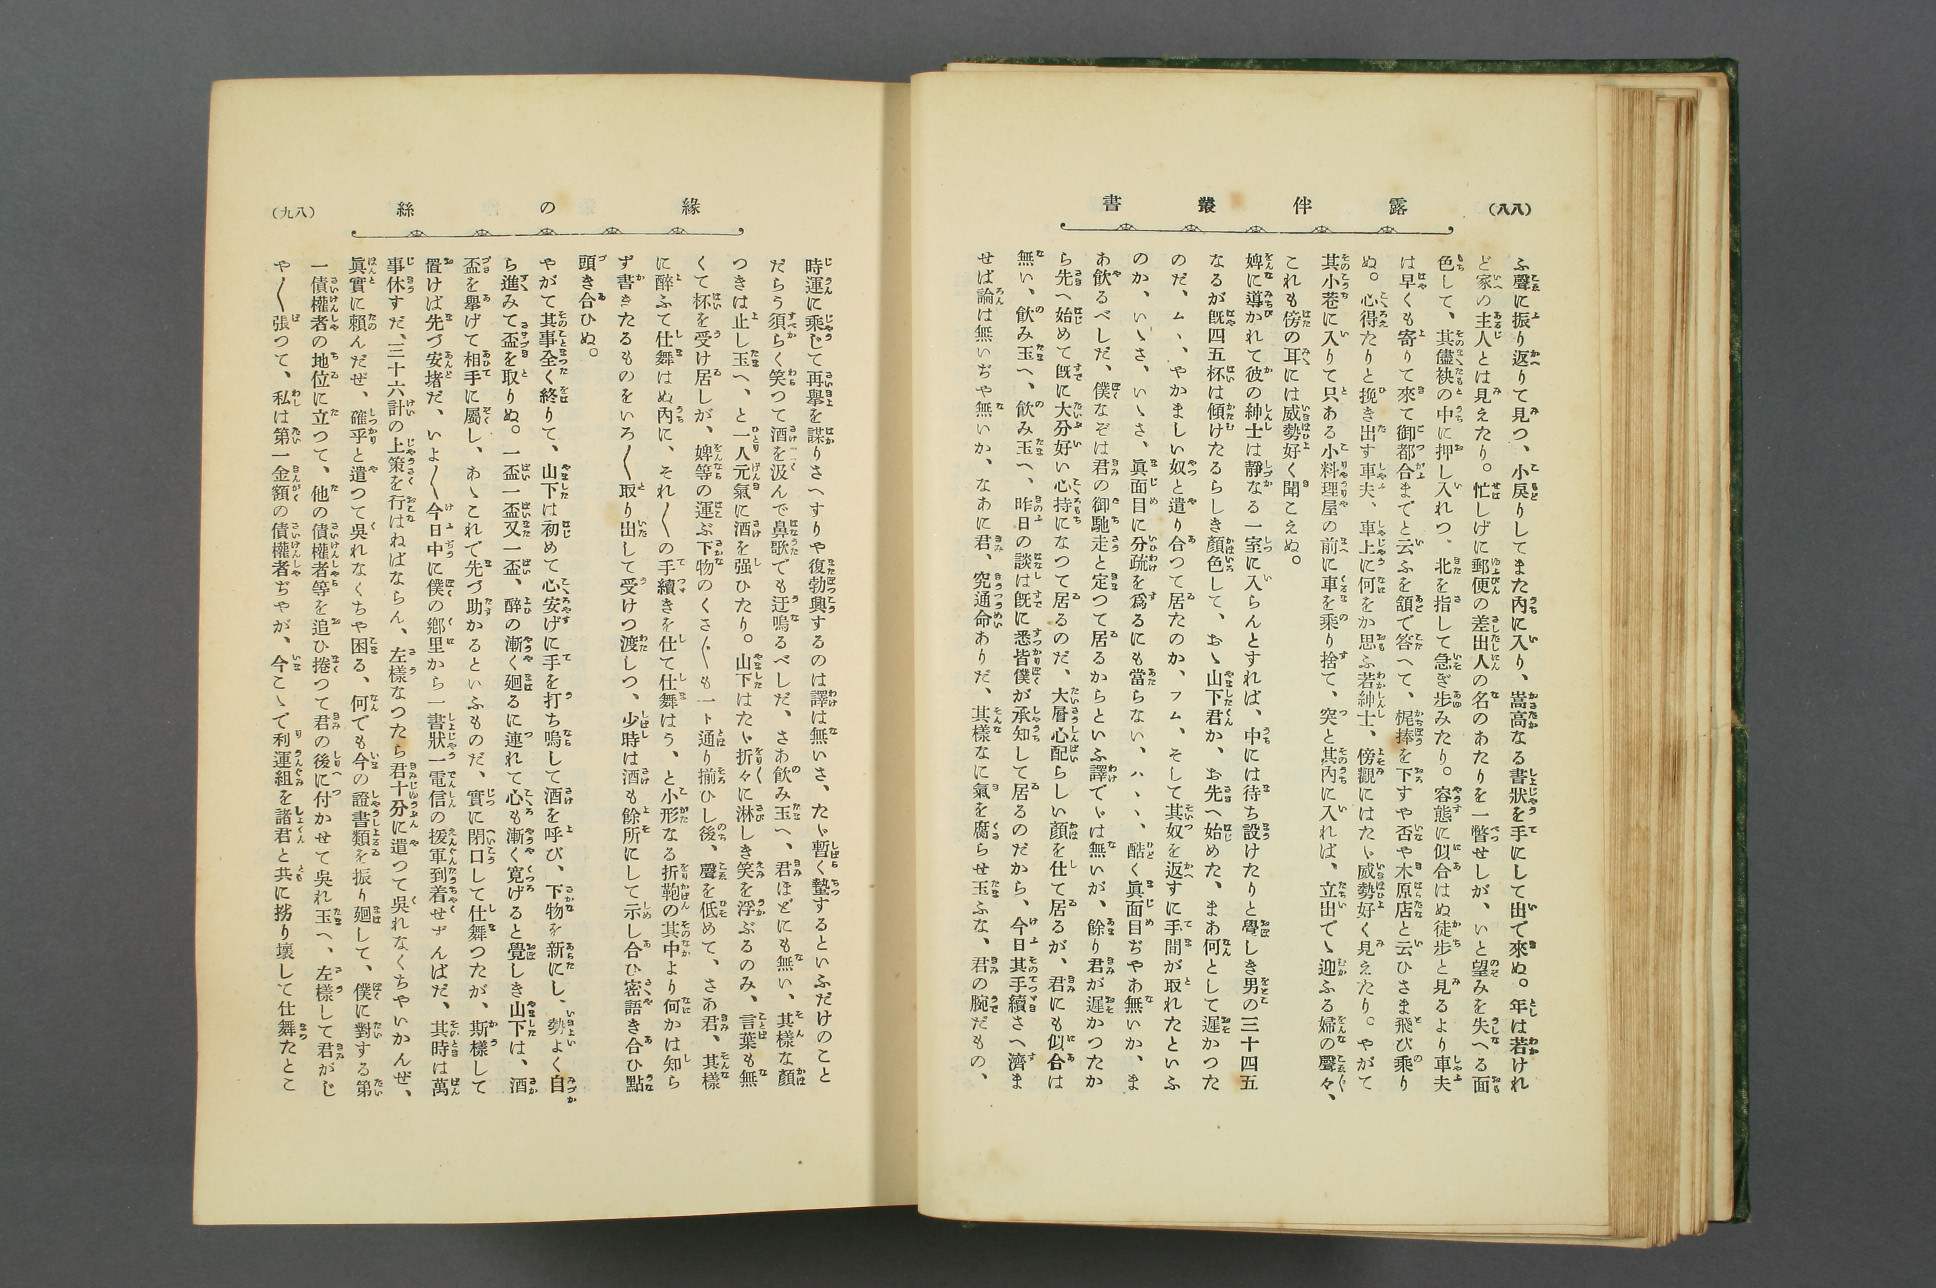 （八八）
露伴叢書
ふ聲に振り返りて見つ、小戻りしてまた內に入り、嵩高なる書狀を手にして出で來ぬ。年は若けれ
ど家の主人とは見えたり。忙しげに郵便の差出人の名のあたりを一瞥せしが、いと望みを失へる面
色して、其儘袂の中に押し入れつ、北を指して急ぎ步みたり。容態に似合はぬ徒步と見るより車夫
は早くも寄りて來て御都合までと云ふを頷で答へて、梶捧を下すや否や木原店と云ひさま飛び乘り
ぬ。心得たりと挽き出す車夫、車上に何をか思ふ若紳士、傍觀にはたゞ威勢好く見えたり。やがて
其小巷に入りて只ある小料理屋の前に車を乘り捨て、突と其內に入れば、立出でゝ迎ふる婦の聲々、
これも傍の耳には威勢好く聞こえぬ。
婢に導かれて彼の紳士は靜なる一室に入らんとすれば、中には待ち設けたりと覺しき男の三十四五
なるが旣四五杯は傾けたるらしき顏色して、おゝ山下君か、お先へ始めた、まあ何として遲かつた
のだ、ムヽ、やかましい奴と遣り合つて居たのか、フム、そして其奴を返すに手間が取れたといふ
のか、いゝさ、いゝさ、眞面目に分疏を爲るにも當らない、ハヽヽ、酷く眞面目ぢやあ無いか、ま
あ飮るべしだ、僕なぞは君の御馳走と定つて居るからといふ譯でゝは無いが、餘り君が遲かつたか
ら先へ始めて旣に大分好い心持になつて居るのだ、大層心配らしい顏を仕て居るが、君にも似合は
無い、飮み玉へ、飮み玉へ、昨日の談は旣に悉皆僕が承知して居るのだから、今日其手續さへ濟ま
せば論は無いぢや無いか、なあに君、究通命ありだ、其樣なに氣を腐らせ玉ふな、君の腕だもの、
緣の絲
（八九）
時運に乘じて再擧を謀りさへすりや復勃興するのは譯は無いさ、たゞ暫く蟄するといふだけのこと
だらう須らく笑つて酒を汲んで鼻歌でも迂鳴るべしだ、さあ飮み玉へ、君ほどにも無い、其樣な顏
つきは止し玉へ、と一人元氣に酒を强ひたり。山下はたゞ折々に淋しき笑を浮ぶるのみ、言葉も無
くて杯を受け居しが、婢等の運ぶ下物のくさ〴〵も一ト通り揃ひし後、聲を低めて、さあ君、其樣
に醉ふて仕舞はぬ內に、それ〳〵の手續きを仕て仕舞はう、と小形なる折鞄の其中より何かは知ら
ず書きたるものをいろ〳〵取り出して受けつ渡しつ、少時は酒も餘所にして示し合ひ密語き合ひ點
頭き合ひぬ。
やがて其事全く終りて、山下は初めて心安げに手を打ち鳴して酒を呼び、下物を新にし、勢よく自
ら進みて盃を取りぬ。一盃一盃又一盃、醉の漸く廻るに連れて心も漸く寬げると覺しき山下は、酒
盃を擧げて相手に屬し、あゝこれで先づ助かるといふものだ、實に閉口して仕舞つたが、斯樣して
置けば先づ安堵だ、いよ〳〵今日中に僕の鄕里から一書狀一電信の援軍到着せずんばだ、其時は萬
事休すだ、三十六計の上策を行はねばならん、左樣なつたら君十分に遣つて吳れなくちやいかんぜ、
眞實に賴んだぜ、確乎と遣つて吳れなくちや困る、何でも今の證書類を振り廻して、僕に對する第
一債權者の地位に立つて、他の債權者等を追ひ捲つて君の後に付かせて吳れ玉へ、左樣して君がじ
や〳〵張つて、私は第一金額の債權者ぢやが、今こゝで利運組を諸君と共に撈り壞して仕舞たとこ